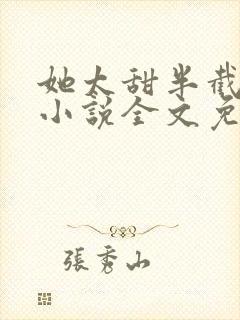 她太甜半截
小説全文免
張秀山